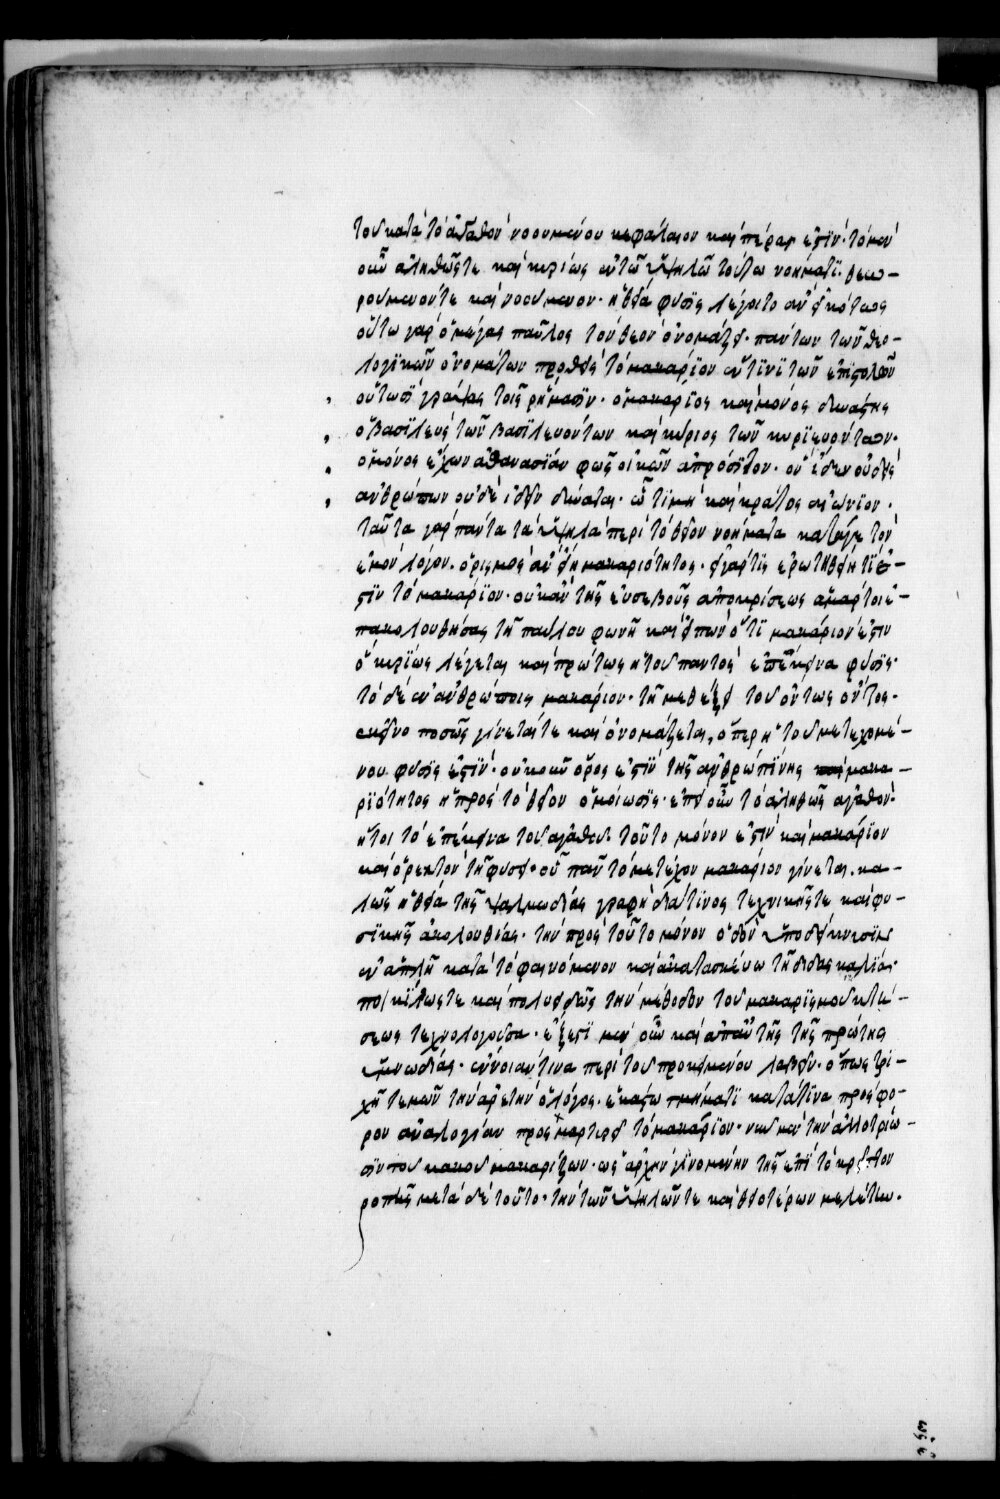 τοῦ κατὰ τὸ ἀγαθὸν νοουμένου κεφάλαιον καὶ πέρας ἐστίν· τὸ μὲν
οὖν ἀληθῶς τε καὶ κυρίως ἐν τῶ ὑψηλῶ τούτω νοήματι θεω-
ρούμενόν τε καὶ νοούμενον· ἡ θεία φύσις λέγοιτο ἂν εἰκότως
οὕτω γὰρ ὁ μέγας παῦλος τὸν θεὸν ὀνομάζει· πάντων τῶν θεο-
λογικῶν ὀνομάτων προθεὶς τὸ μακάριον ἔν τινι τῶν ἐπιστολῶν
οὑτωσὶ γράψας τοῖς ῥήμασιν· ὁ μακάριος καὶ μόνος δυνάστης
ὁ βασιλεὺς τῶν βασιλευόντων καὶ κύριος τῶν κυριευόντων·
ὁ μόνος ἔχων ἀθανασίαν φῶς οἰκῶν ἀπρόσιτον· ὃν εἶδεν οὐδεὶς
ἀνθρώπων οὐδὲ ἰδεῖν δύναται· ὧ τιμὴ καὶ κράτος αἰώνιον·
ταῦτα γὰρ πάντα τὰ ὑψηλὰ περὶ τὸ θεῖον νοήματα κατά γε τὸν
ἐμὸν λόγον· ὁρισμὸς ἂν εἴη μακαριότητος· εἰ γάρ τις ἐρωτηθείη τί ἐ-
στιν τὸ μακάριον· οὐκ ἂν τῆς εὐσεβοῦς ἀποκρίσεως ἁμάρτοι ἐ-
πακολουθήσας τῆ παύλου φωνῆ καὶ εἰπὼν ὅτι μακάριόν ἐστιν
ὃ κυρίως λέγεται καὶ πρώτως ἡ τοῦ παντὸς ἐπέκεινα φύσις·
τὸ δὲ ἐν ἀνθρώποις μακάριον· τῆ μεθέξει τοῦ ὄντως ὄντος·
ἐκεῖνο ποσῶς γίνεταί τε καὶ ὀνομάζεται, ὅπερ ἡ τοῦ μετεχομέ-
νου φύσις ἐστίν· οὐκοῦν ὅρος ἐστὶν τῆς ἀνθρωπίνης μακα-
ριότητος ἡ πρὸς τὸ θεῖον ὁμοίωσις· ἐπεὶ οὖν τὸ ἀληθῶς ἀγαθόν·
ἤτοι τὸ ἐπέκεινα τοῦ ἀγαθοῦ τοῦτο μόνον ἐστὶν καὶ μακάριον
καὶ ὀρεκτὸν τῆ φύσει· οὗ πᾶν τὸ μετέχον μακάριον γίνεται. κα-
λῶς ἡ θεία τῆς ψαλμωδίας γραφὴ διά τινος τεχνικῆς τε καὶ φυ-
σικῆς ἀκολουθίας· τὴν πρὸς τοῦτο μόνον ὁδὸν ὑποδείκνυσιν
ἐν ἁπλῆ κατὰ τὸ φαινόμενον καὶ ἀκατασκεύω τῆ διδασκαλία·
ποικίλως τε καὶ πολυειδῶς τὴν μέθοδον τοῦ μακαρισμοῦ κτή-
σεως τεχνολογοῦσα· ἔξεστι μὲν οὖν καὶ ἀπ' αὐτῆς τῆς πρώτης
ὑμνωδίας· ἔννοιάν τινα περὶ τοῦ προκειμένου λαβεῖν· ὅπως τρι-
χῆ τεμὼν τὴν ἀρετὴν ὁ λόγος· ἑκάστω τμήματι κατά τινα πρόσφο-
ρον ἀναλογίαν προσμαρτυρεῖ τὸ μακάριον· νῦν μὲν τὴν ἀλλοτρίω-
σιν τοῦ κακοῦ μακαρίζων· ὡς ἀρχὴν γινομένην τῆς ἐπὶ τὸ κρεῖττον
ῥοπῆς μετὰ δὲ τοῦτο· τὴν τῶν ὑψηλῶν τε καὶ θειοτέρων μελέτην.